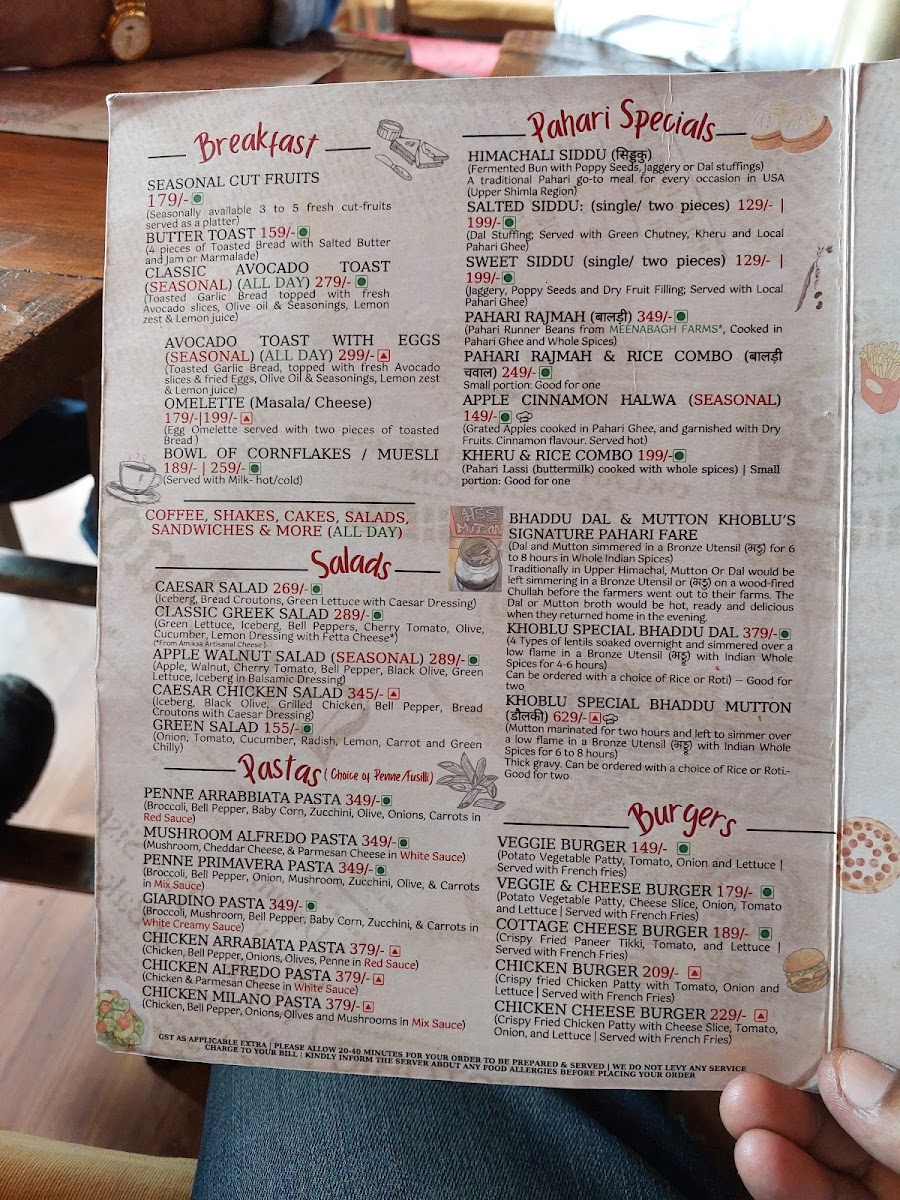 Breakfast
SEASONAL CUT FRUITS
179/-
(Seasonally available 3 to 5 fresh cut-fruits
served as a platter)
BUTTER TOAST 159/-
(4 pieces of Toasted Bread with Salted Butter
and Jam or Marmalade)
CLASSIC AVOCADO TOAST
(SEASONAL) (ALL DAY) 279/-
(Toasted Garlic Bread topped with fresh
Avocado slices, Olive oil & Seasonings, Lemon
zest & Lemon juice)
AVOCADO TOAST WITH EGGS
(SEASONAL) (ALL DAY) 299/-
(Toasted Garlic Bread, topped with fresh Avocado
slices & fried Eggs, Olive Oil & Seasonings, Lemon zest
& Lemon juice)
OMELETTE (Masala/ Cheese)
179/-|199/-
(Egg Omelette served with two pieces of toasted
Bread )
BOWL OF CORNFLAKES / MUESLI
189/- | 259/-
(Served with Milk- hot/cold)
COFFEE, SHAKES, CAKES, SALADS,
SANDWICHES & MORE (ALL DAY)
Salads
CAESAR SALAD 269/-
(Iceberg, Bread Croutons, Green Lettuce with Caesar Dressing)
CLASSIC GREEK SALAD 289/-
(Green Lettuce, Iceberg, Bell Peppers, Cherry Tomato, Olive,
Cucumber, Lemon Dressing with Fetta Cheese*)
(*From Amiksa Artisanal Cheese)
APPLE WALNUT SALAD (SEASONAL) 289/-
(Apple, Walnut, Cherry Tomato, Bell Pepper, Black Olive, Green
Lettuce, Iceberg in Balsamic Dressing)
CAESAR CHICKEN SALAD 345/-
(Iceberg, Black Olive, Grilled Chicken, Bell Pepper, Bread
Croutons with Caesar Dressing)
GREEN SALAD 155/-
(Onion, Tomato, Cucumber, Radish, Lemon, Carrot and Green
Chilly)
Pastas (Choice of Penne/Fusilli)
PENNE ARRABBIATA PASTA 349/-
(Broccoli, Bell Pepper, Baby Corn, Zucchini, Olive, Onions, Carrots in
Red Sauce)
MUSHROOM ALFREDO PASTA 349/-
(Mushroom, Cheddar Cheese, & Parmesan Cheese in White Sauce)
PENNE PRIMAVERA PASTA 349/-
(Broccoli, Bell Pepper, Onion, Mushroom, Zucchini, Olive, & Carrots
in Mix Sauce)
GIARDINO PASTA 349/-
(Broccoli, Mushroom, Bell Pepper, Baby Corn, Zucchini, & Carrots in
White Creamy Sauce)
CHICKEN ARRABIATA PASTA 379/-
(Chicken, Bell Pepper, Onions, Olives, Penne in Red Sauce)
CHICKEN ALFREDO PASTA 379/-
(Chicken & Parmesan Cheese in White Sauce)
CHICKEN MILANO PASTA 379/-
(Chicken, Bell Pepper, Onions, Olives and Mushrooms in Mix Sauce)
Pahari Specials
HIMACHALI SIDDU (सिड्डकु)
(Fermented Bun with Poppy Seeds, Jaggery or Dal stuffings)
A traditional Pahari go-to meal for every occasion in USA
(Upper Shimla Region)
SALTED SIDDU: (single/ two pieces) 129/- |
199/-
(Dal Stuffing; Served with Green Chutney, Kheru and Local
Pahari Ghee)
SWEET SIDDU (single/ two pieces) 129/- |
199/-
(Jaggery, Poppy Seeds and Dry Fruit Filling; Served with Local
Pahari Ghee)
PAHARI RAJMAH (बालड़ी) 349/-
(Pahari Runner Beans from MEENABAGH FARMS*, Cooked in
Pahari Ghee and Whole Spices)
PAHARI RAJMAH & RICE COMBO (बालड़ी
चवाल) 249/-
Small portion: Good for one
APPLE CINNAMON HALWA (SEASONAL)
149/-
(Grated Apples cooked in Pahari Ghee, and garnished with Dry
Fruits. Cinnamon flavour. Served hot)
KHERU & RICE COMBO 199/-
(Pahari Lassi (buttermilk) cooked with whole spices) | Small
portion: Good for one
MUTTON
BHADDU DAL & MUTTON KHOBLU'S
SIGNATURE PAHARI FARE
(Dal and Mutton simmered in a Bronze Utensil (भड्डू) for 6
to 8 hours in Whole Indian Spices)
Traditionally in Upper Himachal, Mutton Or Dal would be
left simmering in a Bronze Utensil or (भड्डू) on a wood-fired
Chullah before the farmers went out to their farms. The
Dal or Mutton broth would be hot, ready and delicious
when they returned home in the evening.
KHOBLU SPECIAL BHADDU DAL 379/-
(4 Types of lentils soaked overnight and simmered over a
low flame in a Bronze Utensil (भड्डू) with Indian Whole
Spices for 4-6 hours)
Can be ordered with a choice of Rice or Roti) – Good for
two
KHOBLU SPECIAL BHADDU MUTTON
(डौलकी) 629/-
(Mutton marinated for two hours and left to simmer over
a low flame in a Bronze Utensil (भड्डू) with Indian Whole
Spices for 6 to 8 hours)
Thick gravy. Can be ordered with a choice of Rice or Roti.-
Good for two
Burgers
VEGGIE BURGER 149/-
(Potato Vegetable Patty, Tomato, Onion and Lettuce |
Served with French fries)
VEGGIE & CHEESE BURGER 179/-
(Potato Vegetable Patty, Cheese Slice, Onion, Tomato
and Lettuce | Served with French Fries)
COTTAGE CHEESE BURGER 189/-
(Crispy Fried Paneer Tikki, Tomato, and Lettuce |
Served with French Fries)
CHICKEN BURGER 209/-
(Crispy fried Chicken Patty with Tomato, Onion and
Lettuce | Served with French Fries)
CHICKEN CHEESE BURGER 229/-
(Crispy Fried Chicken Patty with Cheese Slice, Tomato,
Onion, and Lettuce | Served with French Fries)
GST AS APPLICABLE EXTRA | PLEASE ALLOW 20-40 MINUTES FOR YOUR ORDER TO BE PREPARED & SERVED | WE DO NOT LEVY ANY SERVICE
CHARGE TO YOUR BILL | KINDLY INFORM THE SERVER ABOUT ANY FOOD ALLERGIES BEFORE PLACING YOUR ORDER